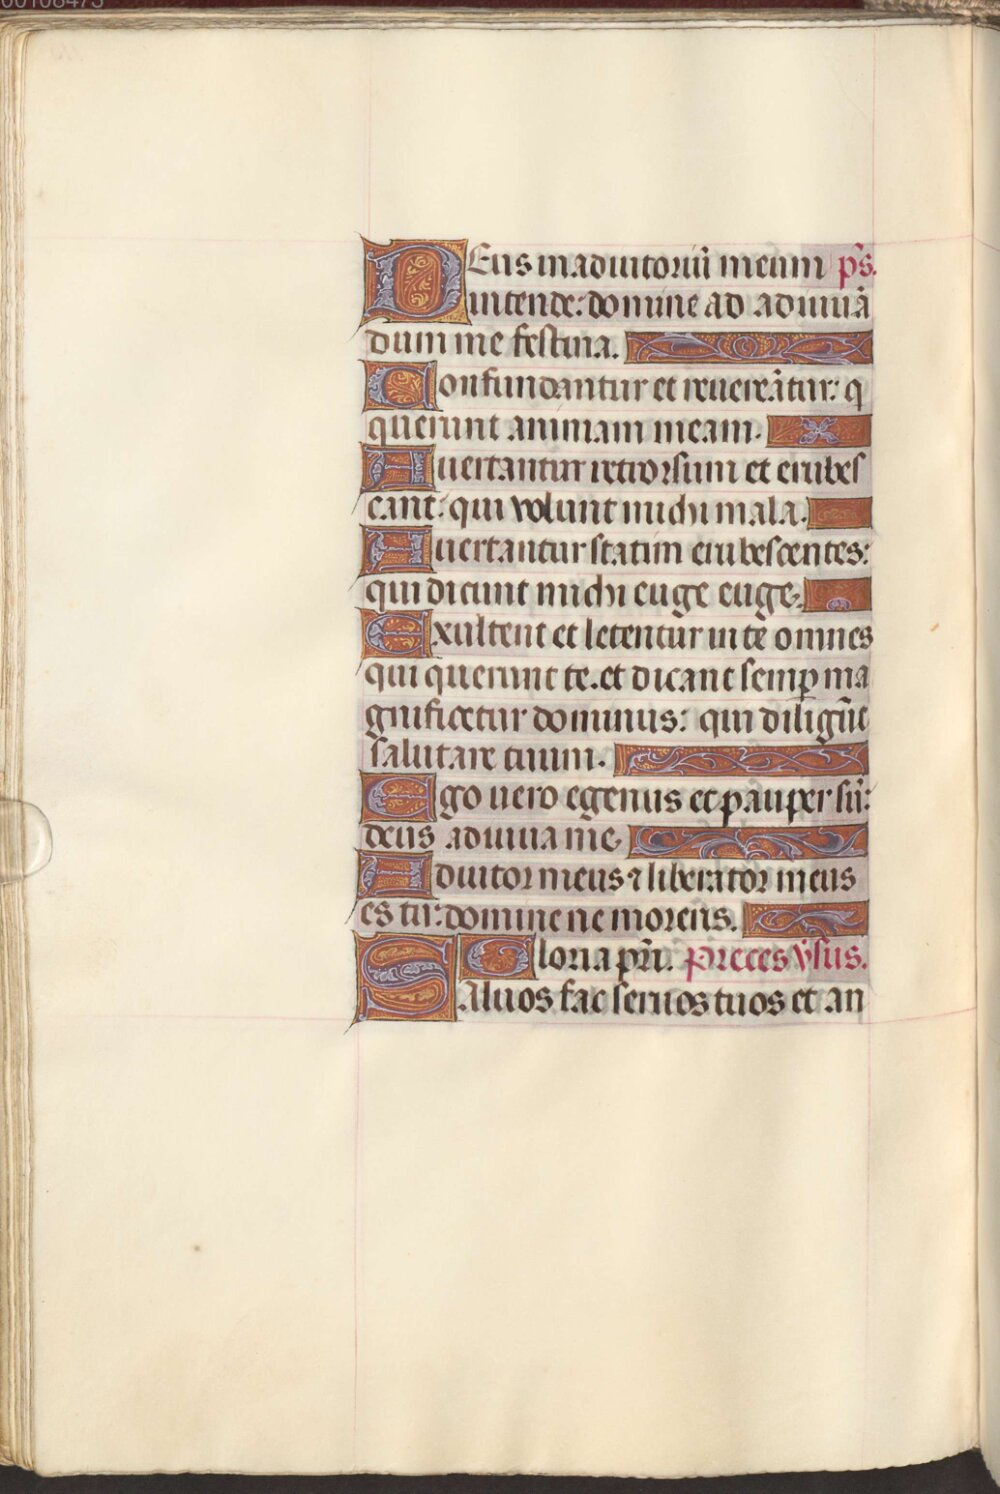 DEus in adiutoriũ meum ps.
intende: domine ad adiuuã
dum me festina.
Confundantur et reuereãtur: q
querunt animam meam.
Auertantur retrorsum et erubes
cant: qui volunt michi mala.
Auertantur statim erubescentes:
qui dicunt michi euge euge.
Exultent et letentur in te omnes
qui querunt te. et dicant semꝑ ma
gnificetur dominus: qui diligũt
salutare tuum.
Ego uero egenus et pauper sũ:
deus adiuua me.
Adiutor meus ⁊ liberator meus
es tu: domine ne moreris.
Gloria pr̃i. Preces v̾sus.
SAluos fac seruos tuos et an